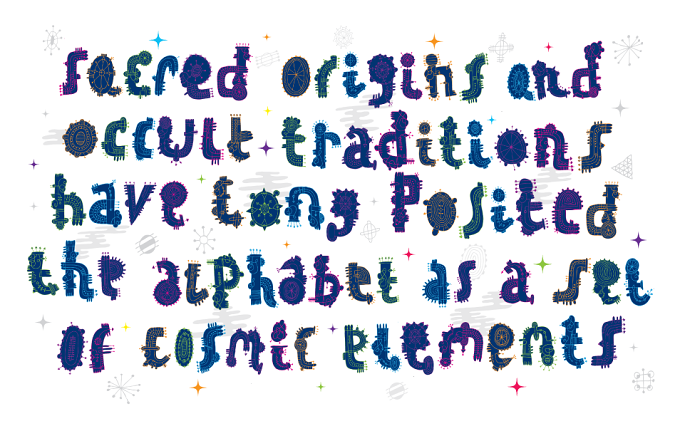 sacred origins and
occult traditions
have long posited
the alphabet as a set
of cosmic elements